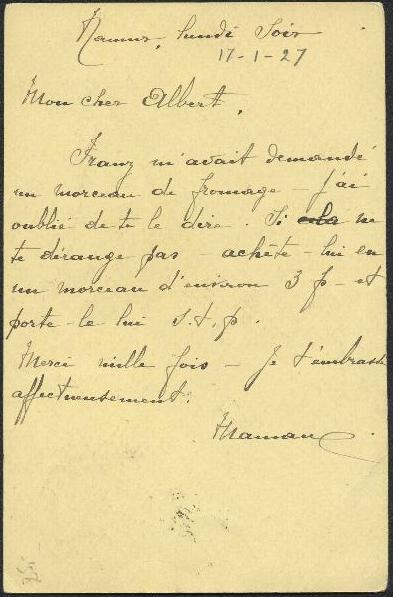 Namur, lundi soir
17-1-27
Mon cher Albert,
Franz m'avait demandé
un morceau de fromage - j'ai
oublié de te le dire. Si cela ne
te dérange pas - achète-lui en
un morceau d'environ 3 f - et
porte-le lui s.t.p.
Merci mille fois - Je t'embrasse
affectueusement.
Maman